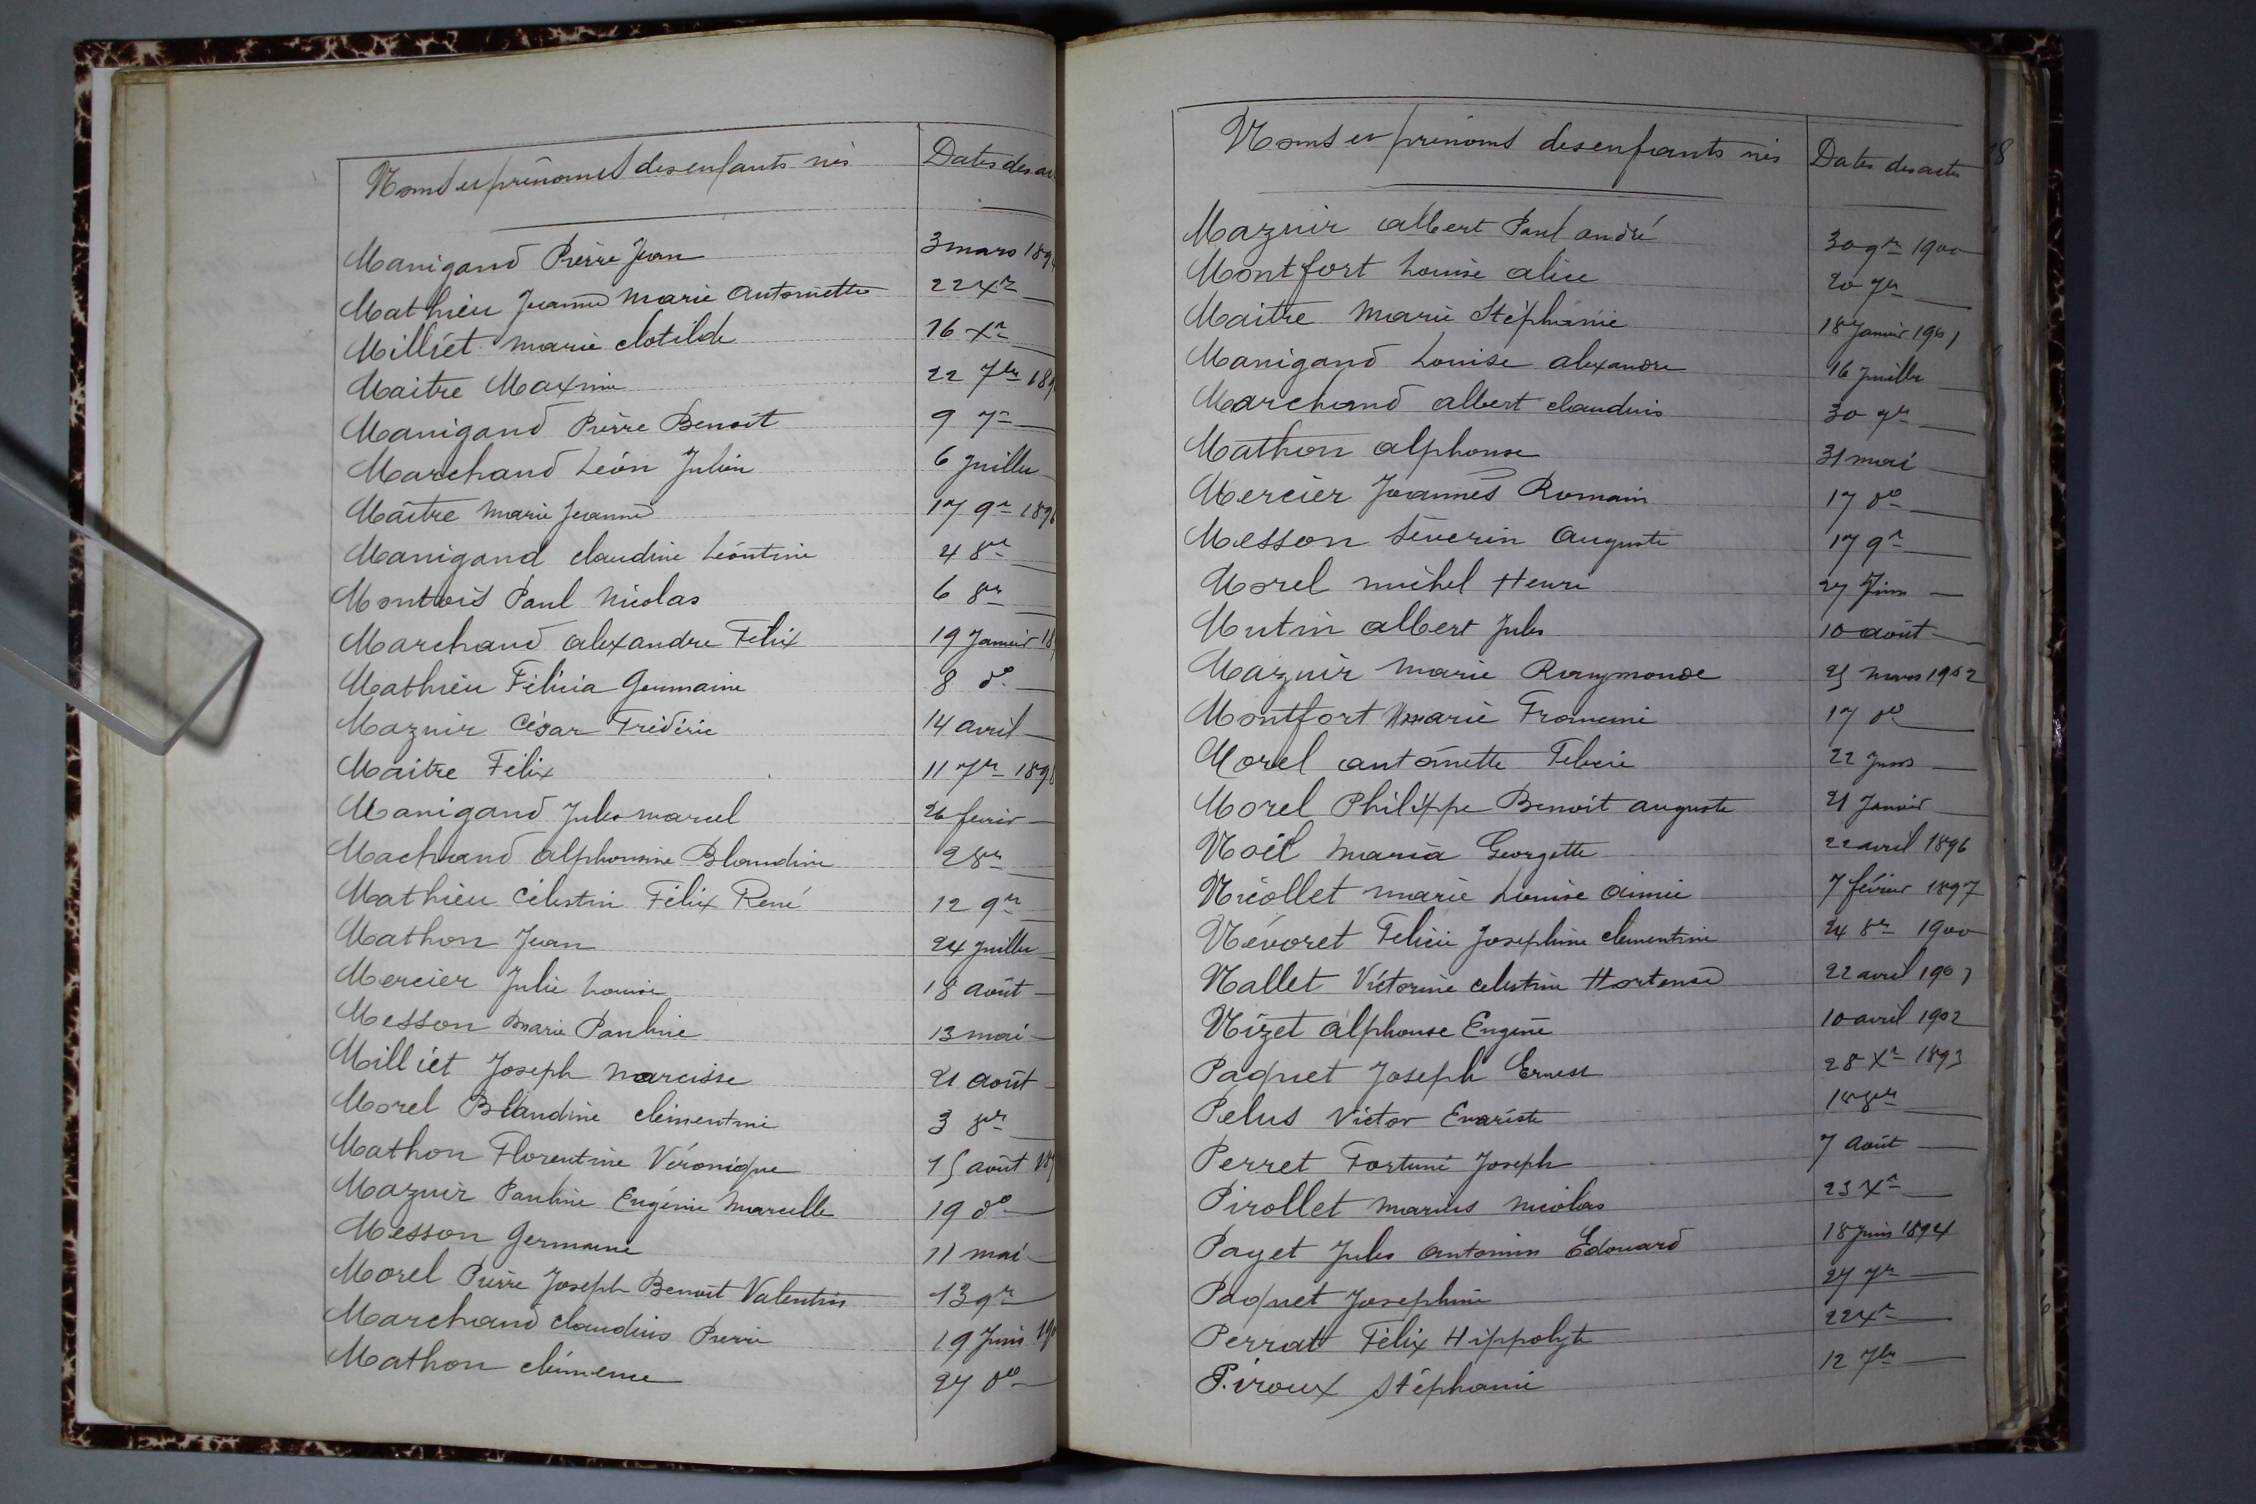 Noms et prénoms des enfants nés Dates des
Manigand Pierre Jean 3 mars 189
Mathieu Jeanne Marie Antoinette 22 Xre
Milliet Marie Clotilde 16 Xre
Maitre Maxime 22 7bre 189
Manigand Pierre Benoit 9 7re
Marchand Léon Julien 6 Juillet
Maître Marie Jeanne 17 9re 1896
Manigand Claudine Léontine 4 8re
Montvois Paul Nicolas 6 8re
Marchand Alexandre Félix 19 Janvier 18
Mathieu Félicia Germaine 8 do
Maznir César Frédéric 14 avril
Maitre Félix 11 7re 1898
Manigand Jules Marcel 26 fevrier
Machand Alphonsine Blandine 2 8re
Mathieu Célestin Félix René 12 9re
Mathon Jean 24 Juillet
Mercier Julie Louise 18 août
Messon Marie Pauline 13 mai
Milliet Joseph Narcisse 21 août
Morel Blandine Clémentine 3 8re
Mathon Florentine Véronique 15 août 189
Maznir Pauline Eugénie Marcelle 19 do
Messon Germaine 11 mai
Morel Pierre Joseph Benoit Valentin 13 9re
Marchand Claudius Pierre 19 Juin 190
Mathon Clémence 27 do
Noms et prénoms des enfants nés Dates des actes 8
Maznir Albert Paul André 30 9re 1900
Montfort Louise Alice 20 7re
Maitre Marie Stéphanie 18 Janvier 1901
Manigand Louise Alexandre 16 Juillet
Marchand Albert Claudius 30 7re
Mathon Alphonse 31 mai
Mercier Joannès Romain 17 do
Messon Séverin Auguste 17 9re
Morel Michel Henri 27 Juin
Mutin Albert Jules 10 août
Maznir Marie Raymonde 25 Mars 1902
Montfort Marie 17 do
Morel Antoinette Félicie 22
Morel Philippe Benoit Auguste 21 Janvier
Noël Maria Georgette 22 avril 1896
Nicollet Marie Louise Aimée 7 février 1897
Névoret Félicie Josephine Clementine 24 8re 1900
Nallet Victorine Celestine Hortense 22 avril 1901
Nizet Alphonse Eugène 10 avril 1902
Paquet Joseph Ernest 28 Xre 1893
Pelus Victor Evariste 18 8re
Perret Fortuné Joseph 7 Août
Pirollet Marius Nicolas 23 Xre
Payet Jules Antonin Edouard 18 Juin 1894
Paquet Josephine 27 7re
Perrat Félix Hippolyte 22 Xre
Piroux Stéphanie 12 7bre